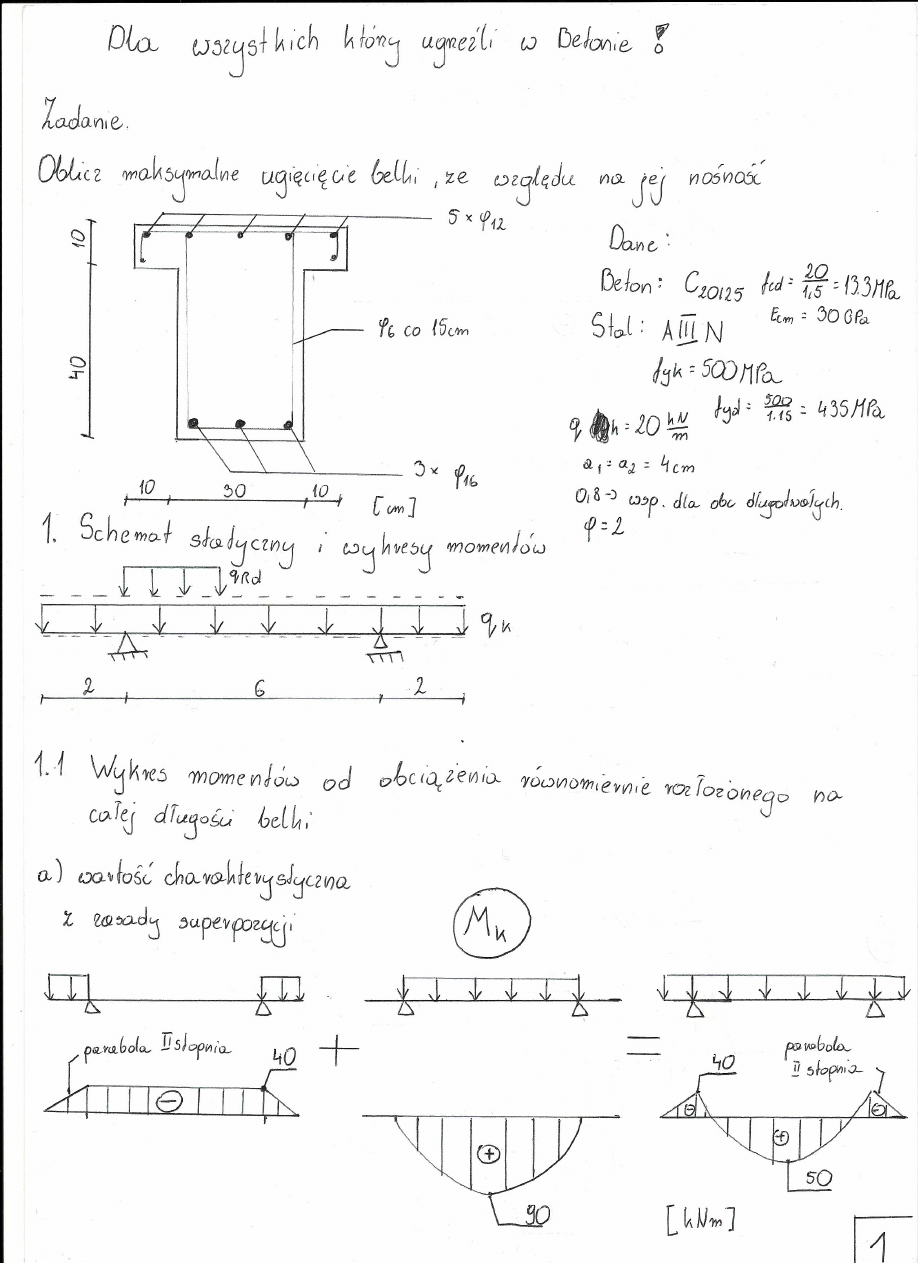 Dla wszystkich który ugrzęźli w Betonie !
Zadanie.
Oblicz maksymalne ugięcięcie belki, ze względu na jej nośność
5 × φ12
10
40
φ6 co 15cm
3 × φ16
10 30 10
[cm]
Dane:
Beton: C20/25 fcd = 20/1,5 = 13.3 MPa
Ecm = 30 GPa
Stal: A III N
fyk = 500 MPa
fyd = 500/1.15 = 435 MPa
q k = 20 kN/m
a1 = a2 = 4 cm
0,8 → wsp. dla obc długotrwałych.
φ = 2
1. Schemat statyczny i wykresy momentów
qRd
qk
2 6 2
1.1 Wykres momentów od obciążenia równomiernie rozłożonego na
całej długości belki
a) wartość charakterystyczna
z zasady superpozycji
Mk
parabola II stopnia
40
+
=
40
parabola
II stopnia
-
+
90
-
+
-
50
[kNm]
1